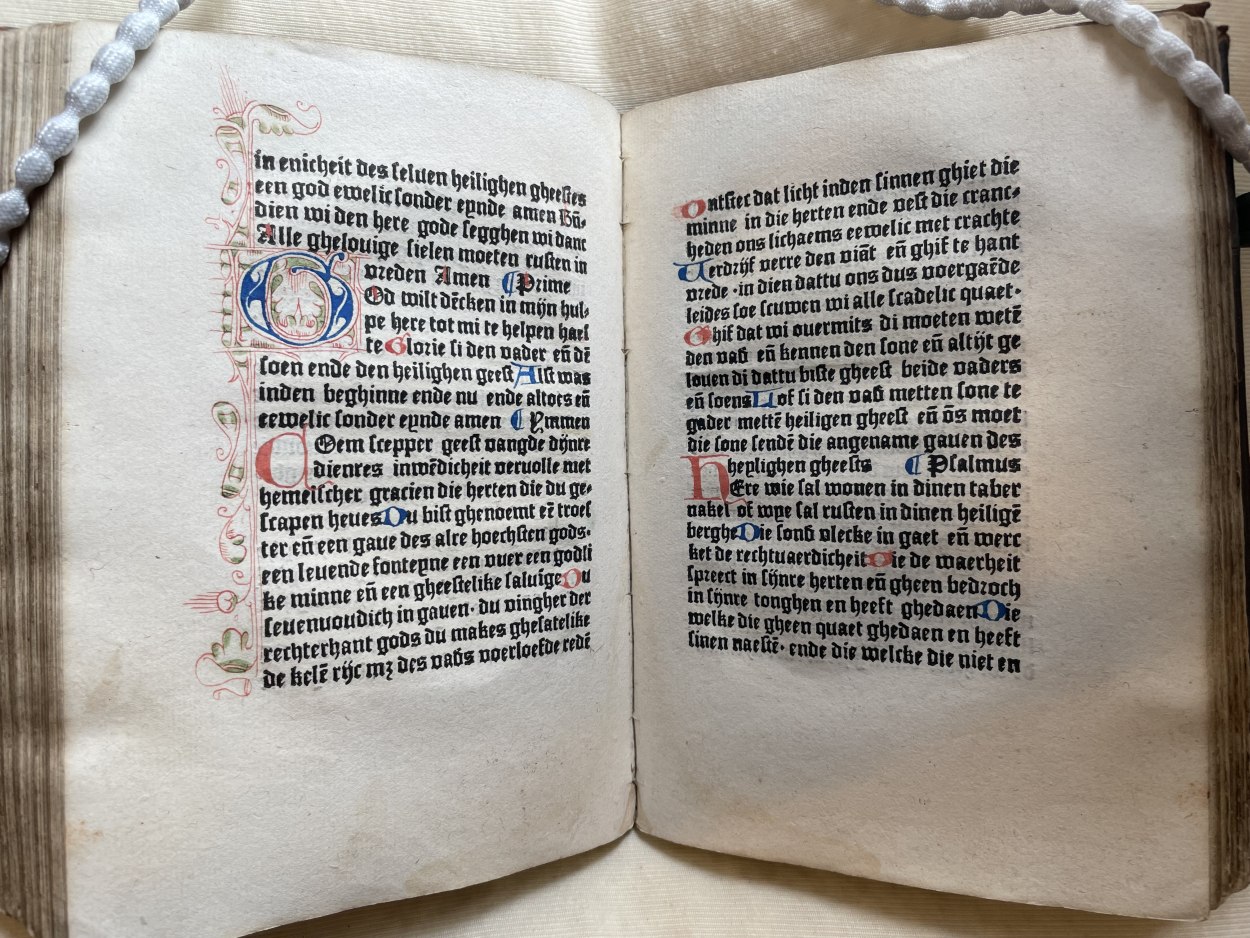 in enicheit des seluen heilighen gheestes
een god ewelic sonder eynde amen Bn̄-
dien wi den here gode segghen wi danc
Alle ghelouige sielen moeten rusten in
vreden Amen ⸿ Prime
GOd wilt dēcken in mijn hul-
pe here tot mi te helpen haes
te Glorie si den vader en̄ dē
soen ende den heilighen geest Alst was
inden beghinne ende nu ende altoes en̄
eewelic sonder eynde amen ⸿ Ymmen
COem scepper geest vangde dijnre
dienres inwēdicheit vervolle met
hemelscher gracien die herten die du ge-
scapen heues Du bist ghenoemt eē troes
ter en̄ een gaue des alre hoechsten gods-
een leuende fonteyne een vuer een godli
ke minne en̄ een gheestelike saluige Du
seuenuoudich in gauen· du vingher der
rechterhant gods du makes ghesatelike
de kelē rijc mꝫ des vad̄s voerloefde redē
Ontstec dat licht inden sinnen ghiet die
minne in die herten ende vest die cranc-
heden ons lichaems eewelic met crachte
Verdrijf verre den viāt en̄ ghif te hant
vrede ·in dien dattu ons dus voergaēde
leides soe scuwen wi alle scadelic quaet·
Ghif dat wi ouermits di moeten wetē
den vad̄ en̄ kennen den sone en̄ altijt ge
louen di dattu biste gheest beide vaders
en̄ soens Lof si den vad̄ metten sone te
gader mettē heiligen gheest en̄ ōs moet
die sone sendē die angename gauen des
heylighen gheests ⸿ Psalmus
HEre wie sal wonen in dinen taber
nakel of wye sal rusten in dinen heiligē
berghe Die sond̄ vlecke in gaet en̄ werc
ket de rechtuaerdicheit Die de waerheit
spreect in sijnre herten en̄ gheen bedroch
in sijnre tonghen en heeft ghedaen Die
welke die gheen quaet ghedaen en heeft
sinen naestē· ende die welcke die niet en